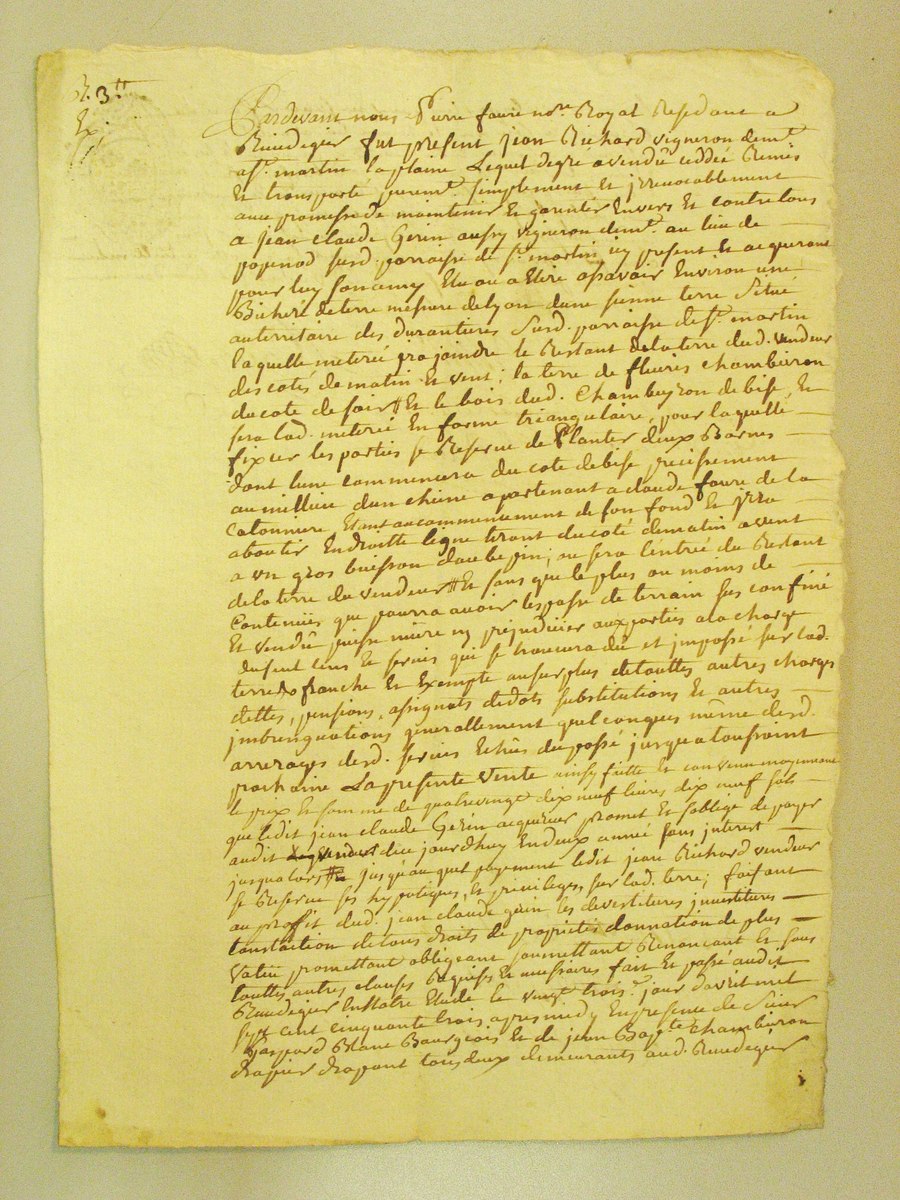 R. 3 ₶
Ex
Pardevant nous Pierre faure no.re Royal Residant a
Rivedegier fut present jean Richard vigneron dem.t
a s.t martin la plaine Lequel degre a vendû ceddé Remis
Et transporté purem.t simplement et jrrevocablement
avec promesse de maintenir Et garentir Envers Et contre tous
a jean claude Gerin aussy vigneron dem.t au lieu de
susd. parroisse de s.t martin icy present Et acquerant
pour luy son amy Elu ou a Elire asavoir Environ une
Bicherée de terre mesure de lyon dune sienne terre situé
au territoire des durantieres susd. parroisse de s.t martin
laquelle meterée jra joindre le Restant de la terre dud. vendeur
des cotés de matin Et vent ; la terre de fleuris chambieron
du cote de soir Et le bois dud. Chambeyron de bise Et
sera lad. meterée En forme triangulaire, pour laquelle
fixer les parties se Reserve de Planter deux Bornes
dont lune commencera du cote de bise precissement
au millieu dun chaine apartenant a claude faure de la
Catonniere, Etant au commencement de son fond Et jra
aboutir En droitte ligne tirant du coté de matin a vent
a un gros buisson daubepin ; ou sera lentrée du Restant
de la terre du vendeur Et sans que le plus ou moins de
Contenüe que pourra avoir lespasse de terrain sus confiné
Et vendû puisse nüire ny prejudicier aux parties a la charge
du cens et servis qui se trouvera dû et impossé sur lad.
terre franche Et Exempte au surplus de touttes autres charges
dettes, pensions, assignats de dots substitutions Et autres
jmbrinquations generallement quelconques même desd.
arrerages desd. servis Echûs du passé jusqua toussaint
prochaine La presente Vente ainsy faitte Et convenue moyennant
le prix Et somme de quatrevingt dix neuf livres dix neuf sols
que ledit jean claude Gerin acquereur promet Et soblige de payer
audit vendeur dicy jourdhuy En deux année sans interest
jusqualors jusquauquel payement ledit jean Richard vendeur
se Reserve ses hypotiques, Et privileges sur lad. terre ; faisant
au proffit dud. jean claude gerin les devestitures investitures
translaction de tous droits de proprietés donnation de plus
Valüe promettant obligeant soumettant Renoncant Et sous
touttes autres clauses Requises Et necessaires fait Et passé audit
Rivedegier En notre Etude le vingt trois.e jour davril mil
sept cent cinquante trois apres midy En presence de Sieur
Gaspard Blanc Bourgeois Et de jean Bap.te chambieron
drapier drapant tous deux demeurants aud. Rivedegier